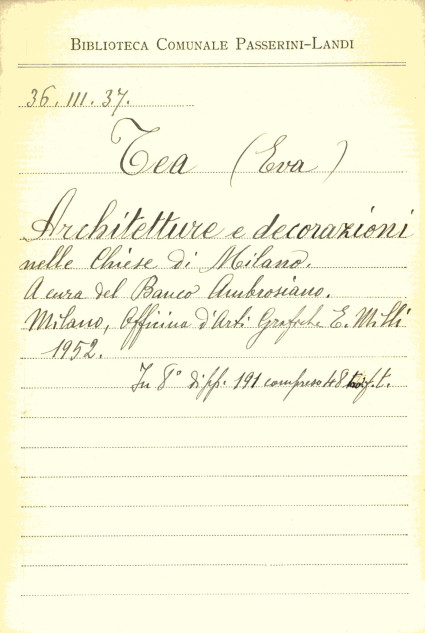 BIBLIOTECA COMUNALE PASSERINI-LANDI
36. III. 37.
Tea (Eva)
Architetture e decorazioni
nelle Chiese di Milano.
A cura del Banco Ambrosiano.
Milano, Officina d'Arti Grafiche E. Milli
1952.
In 8° di pp. 191 compreso 48 f. t.